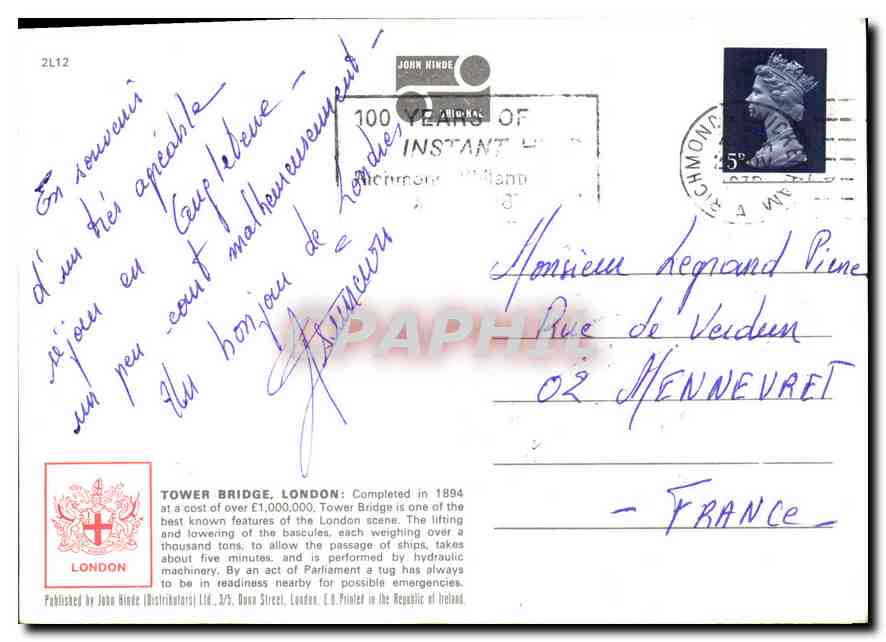 2L12
JOHN HINDE
ORIGINAL
100 YEARS OF
INSTANT
Richmond
RICHMOND
5D
En souvenir
d'un très agréable
séjour en Angleterre -
un peu court malheureusement -
Un bonjour de Londres
Monsieur Legrand Pierre
Rue de Verdun
02 MENNEVRET
- FRANCE -
CPAPHIL
LONDON
TOWER BRIDGE, LONDON: Completed in 1894
at a cost of over £1,000,000, Tower Bridge is one of the
best known features of the London scene. The lifting
and lowering of the bascules, each weighing over a
thousand tons, to allow the passage of ships, takes
about five minutes, and is performed by hydraulic
machinery. By an act of Parliament a tug has always
to be in readiness nearby for possible emergencies.
Published by John Hinde (Distributors) Ltd., 3/5, Dunn Street, London, E.8. Printed in the Republic of Ireland.